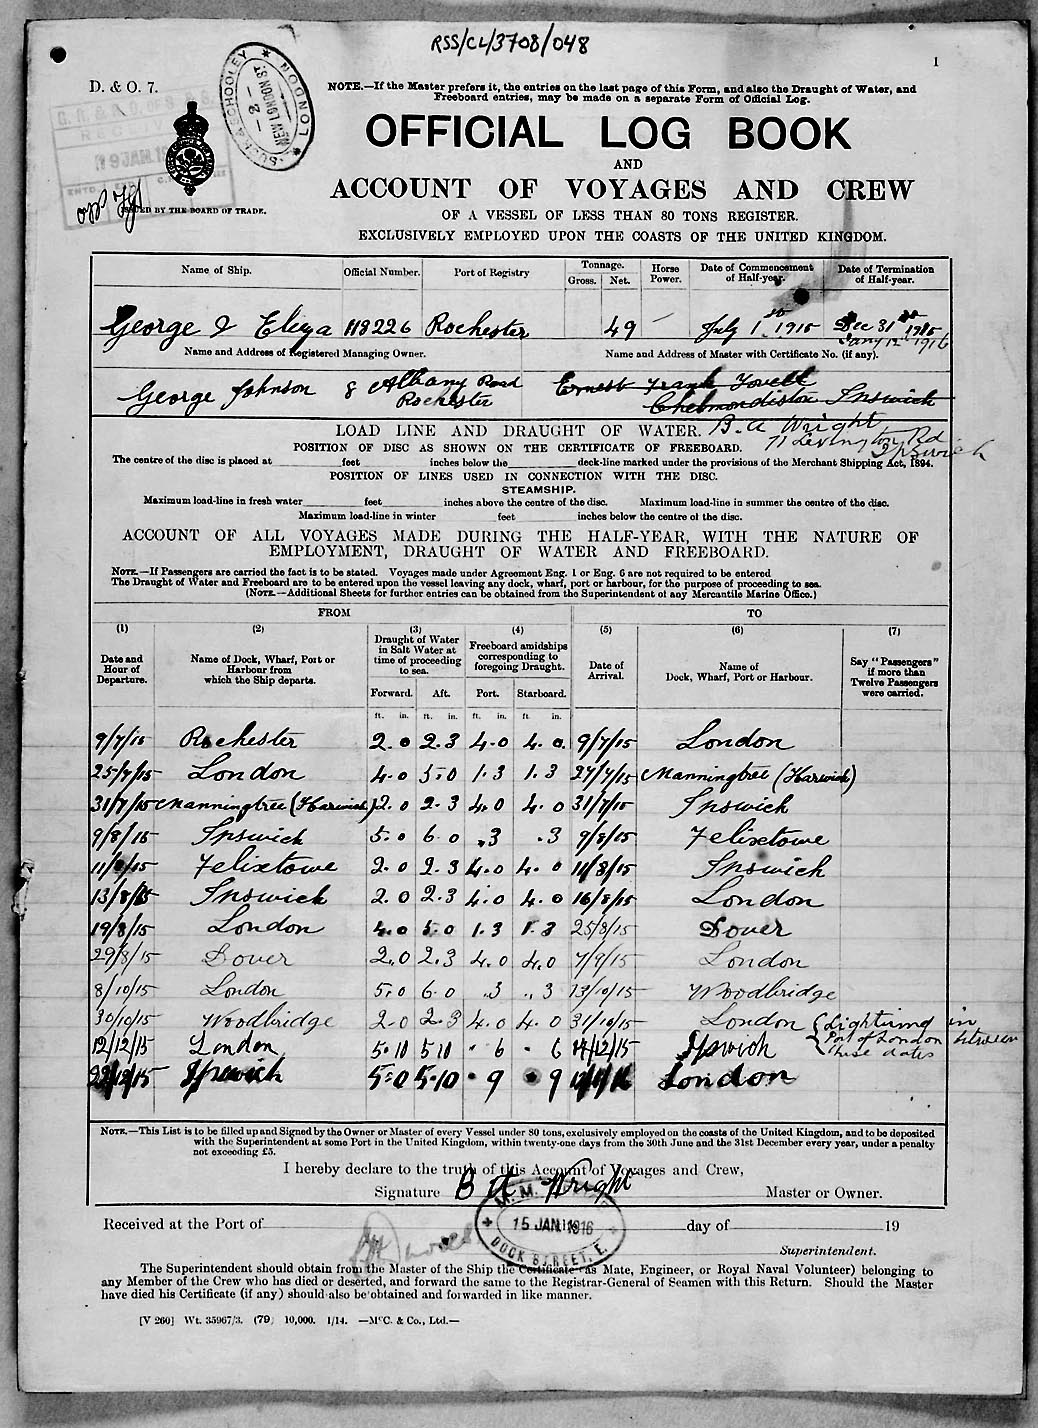 RSS/CL/3708/048
1
D. & O. 7.
LONDON
NEW LONDON ST.
- 2 -
RECEIVED
NOTE.—If the Master prefers it, the entries on the last page of this Form, and also the Draught of Water, and
Freeboard entries, may be made on a separate Form of Official Log.
OFFICIAL LOG BOOK
AND
ACCOUNT OF VOYAGES AND CREW
ISSUED BY THE BOARD OF TRADE.
OF A VESSEL OF LESS THAN 80 TONS REGISTER.
EXCLUSIVELY EMPLOYED UPON THE COASTS OF THE UNITED KINGDOM.
Name of Ship. Official Number. Port of Registry Tonnage. Gross. Net. Horse Power. Date of Commencement of Half-year. Date of Termination of Half-year.
George & Eliza 118226 Rochester 49 — July 1st 1915 Dec 31st 1915
Jany 12 1916
Name and Address of Registered Managing Owner. Name and Address of Master with Certificate No. (if any).
George Johnson 8 Albany Road Ernest Frank Tovell
Rochester Chelmondiston Ipswich
B. A Wright
71 Levington Rd
Ipswich
LOAD LINE AND DRAUGHT OF WATER.
POSITION OF DISC AS SHOWN ON THE CERTIFICATE OF FREEBOARD.
The centre of the disc is placed at feet inches below the deck-line marked under the provisions of the Merchant Shipping Act, 1894.
POSITION OF LINES USED IN CONNECTION WITH THE DISC.
STEAMSHIP.
Maximum load-line in fresh water feet inches above the centre of the disc. Maximum load-line in summer the centre of the disc.
Maximum load-line in winter feet inches below the centre of the disc.
ACCOUNT OF ALL VOYAGES MADE DURING THE HALF-YEAR, WITH THE NATURE OF
EMPLOYMENT, DRAUGHT OF WATER AND FREEBOARD.
NOTE.—If Passengers are carried the fact is to be stated. Voyages made under Agreement Eng. 1 or Eng. 6 are not required to be entered
The Draught of Water and Freeboard are to be entered upon the vessel leaving any dock, wharf, port or harbour, for the purpose of proceeding to sea.
(NOTE.—Additional Sheets for further entries can be obtained from the Superintendent of any Mercantile Marine Office.)
FROM TO
(1) (2) (3) (4) (5) (6) (7)
Date and Hour of Departure. Name of Dock, Wharf, Port or Harbour from which the Ship departs. Draught of Water in Salt Water at time of proceeding to sea. Freeboard amidships corresponding to foregoing Draught. Date of Arrival. Name of Dock, Wharf, Port or Harbour. Say "Passengers" if more than Twelve Passengers were carried.
Forward. Aft. Port. Starboard.
ft. in. ft. in. ft. in. ft. in.
9/7/15 Rochester 2.0 2.3 4.0 4.0. 9/7/15 London
25/7/15 London 4.0 5.0 1.3 1.3 27/7/15 Manningtree (Harwich)
31/7/15 Manningtree (Harwich) 2.0 2.3 4.0 4.0 31/7/15 Ipswich
9/8/15 Ipswich 5.0 6.0 .3 .3 9/8/15 Felixtowe
11/8/15 Felixtowe 2.0 2.3 4.0 4.0 11/8/15 Ipswich
13/8/15 Ipswich 2.0 2.3 4.0 4.0 16/8/15 London
19/8/15 London 4.0 5.0 1.3 1.3 25/8/15 Dover
29/8/15 Dover 2.0 2.3 4.0 4.0 7/9/15 London
8/10/15 London 5.0 6.0 .3 .3 13/10/15 Woodbridge
30/10/15 Woodbridge 2.0 2.3 4.0 4.0 31/10/15 London (Lightering in
12/12/15 London 5.10 5 10 . 6 . 6 14/12/15 Ipswich Port of London between
these dates
22/12/15 Ipswich 5.0 5.10 . 9 . 9 London
NOTE.—This List is to be filled up and Signed by the Owner or Master of every Vessel under 80 tons, exclusively employed on the coasts of the United Kingdom, and to be deposited
with the Superintendent at some Port in the United Kingdom, within twenty-one days from the 30th June and the 31st December every year, under a penalty
not exceeding £5.
I hereby declare to the truth of this Account of Voyages and Crew,
Signature B A Wright Master or Owner.
Received at the Port of day of 19
M. M.
15 JAN. 1916
DOCK STREET, E.
Superintendent.
The Superintendent should obtain from the Master of the Ship the Certificate (as Mate, Engineer, or Royal Naval Volunteer) belonging to
any Member of the Crew who has died or deserted, and forward the same to the Registrar-General of Seamen with this Return. Should the Master
have died his Certificate (if any) should also be obtained and forwarded in like manner.
[V 260] Wt. 35967/3. (79) 10,000. 1/14. —McC. & Co., Ltd.—